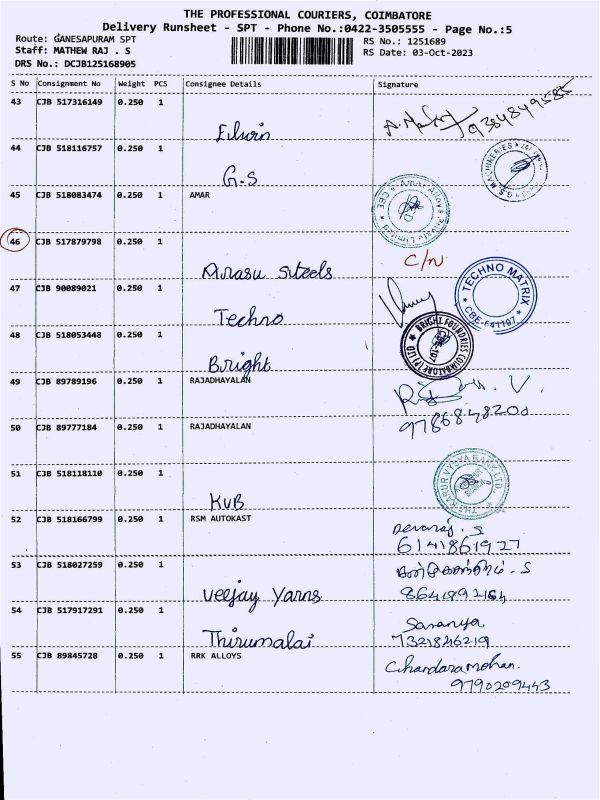 THE PROFESSIONAL COURIERS, COIMBATORE
Delivery Runsheet - SPT - Phone No.:0422-3505555 - Page No.:5
Route: GANESAPURAM SPT
RS No.: 1251689
Staff: MATHEW RAJ . S
RS Date: 03-Oct-2023
DRS No.: DCJB125168905
S No Consignment No Weight PCS Consignee Details Signature
43 CJB 517316149 0.250 1
Edwin 9384849585
44 CJB 518116757 0.250 1
G.S G.S MACHINERIES
45 CJB 518083474 0.250 1 AMAR
46 CJB 517879798 0.250 1
Arasu Steels C/N
47 CJB 90089021 0.250 1
Techno TECHNO MATRIX CBE-641197
48 CJB 518053448 0.250 1
Bright BRIGHT FOUNDRIES COIMBATORE (P) LTD
49 CJB 89789196 0.250 1 RAJADHAYALAN
50 CJB 89777184 0.250 1 RAJADHAYALAN
9786848200
51 CJB 518118110 0.250 1
KVB THE KARUR VYSYA BANK LTD.
52 CJB 518166799 0.250 1 RSM AUTOKAST
Devaraj . S
6141861927
53 CJB 518027259 0.250 1
Veejay Yarns
54 CJB 517917291 0.250 1
Thirumalai Saranya
7321846219
55 CJB 89845728 0.250 1 RRK ALLOYS
Chandaramohan.
9790209443